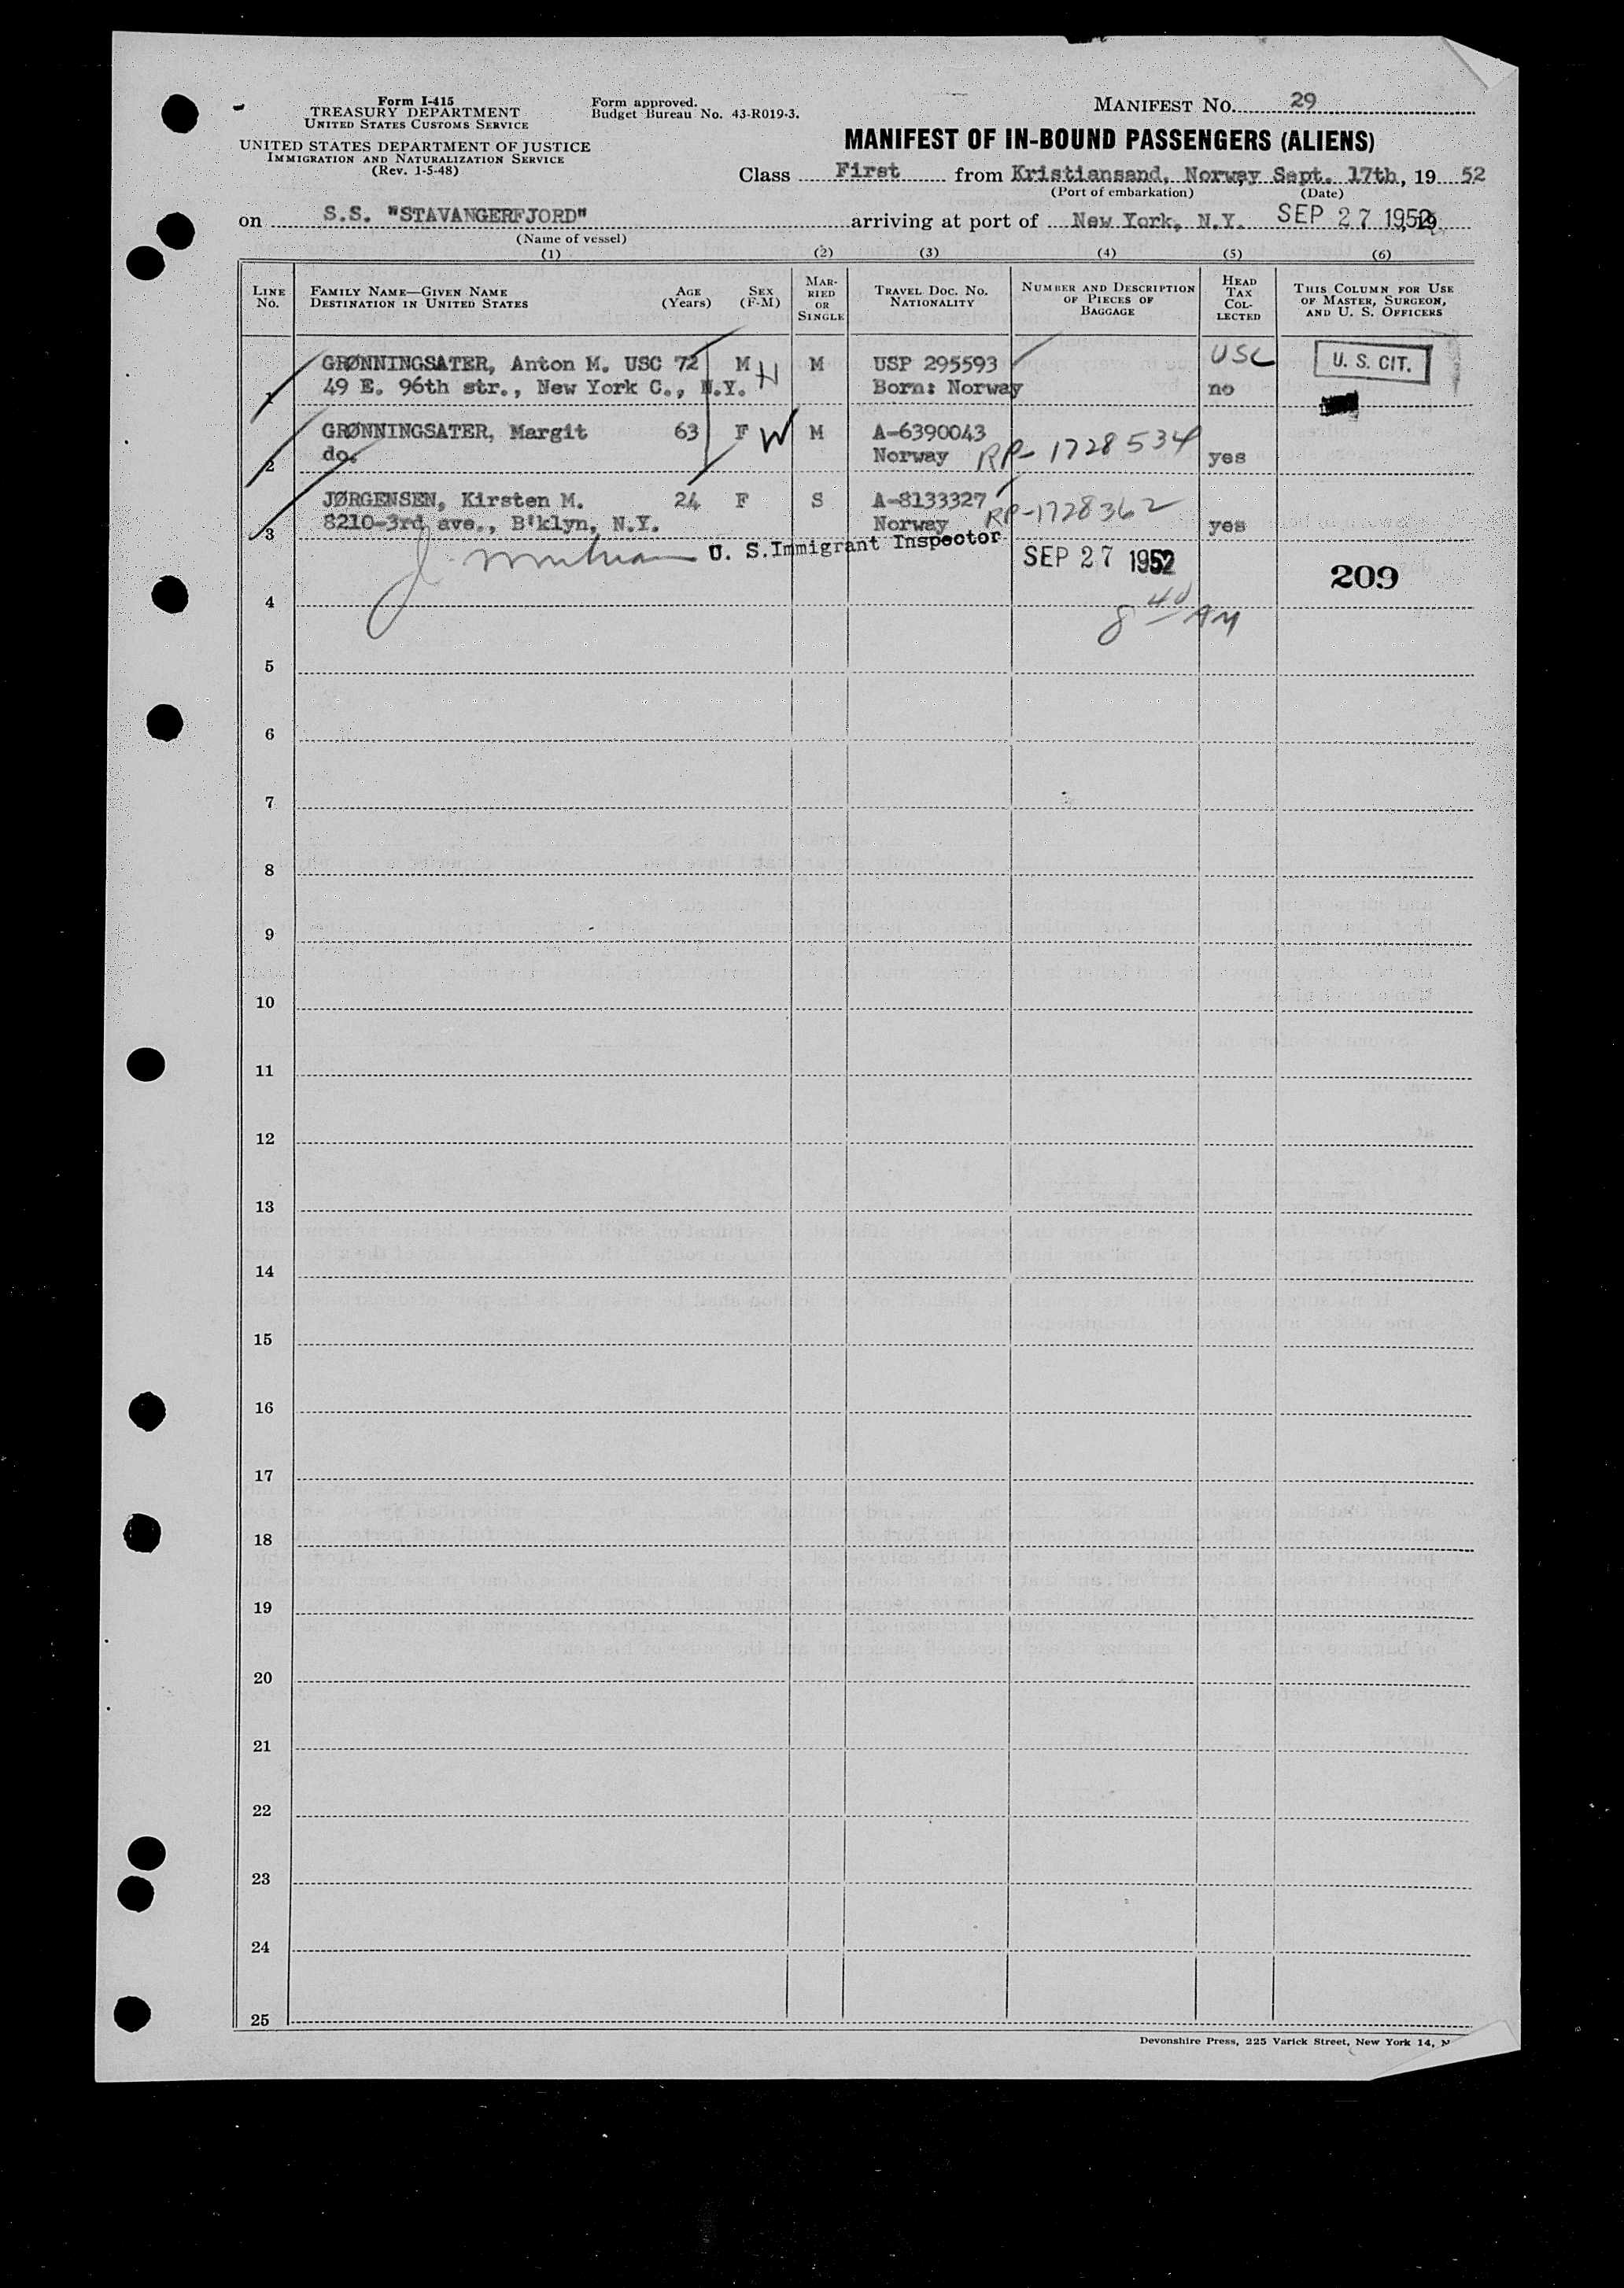 Form I-415
TREASURY DEPARTMENT
UNITED STATES CUSTOMS SERVICE
UNITED STATES DEPARTMENT OF JUSTICE
IMMIGRATION AND NATURALIZATION SERVICE
(Rev. 1-5-48)
Form approved.
Budget Bureau No. 43-R019-3.
MANIFEST NO. 29
MANIFEST OF IN-BOUND PASSENGERS (ALIENS)
Class First from Kristiansand, Norway Sept. 17th, 19 52
(Port of embarkation) (Date)
on S.S. "STAVANGERFJORD" arriving at port of New York, N.Y. SEP 27 1952, 19
(Name of vessel)
(1) (2) (3) (4) (5) (6)
LINE No.
FAMILY NAME—GIVEN NAME
DESTINATION IN UNITED STATES
AGE (Years)
SEX (F-M)
MARRIED OR SINGLE
TRAVEL DOC. NO.
NATIONALITY
NUMBER AND DESCRIPTION OF PIECES OF BAGGAGE
HEAD TAX COLLECTED
THIS COLUMN FOR USE OF MASTER, SURGEON, AND U. S. OFFICERS
1 GRØNNINGSATER, Anton M. USC 72 M H M USP 295593 USC U. S. CIT.
49 E. 96th str., New York C., N.Y. Born: Norway no
2 GRØNNINGSATER, Margit 63 F W M A-6390043
do. Norway RP-1728534 yes
3 JØRGENSEN, Kirsten M. 24 F S A-8133327
8210-3rd ave., B'klyn, N.Y. Norway RP-1728362 yes
U. S. Immigrant Inspector SEP 27 1952
209
8 40 AM
4
5
6
7
8
9
10
11
12
13
14
15
16
17
18
19
20
21
22
23
24
25
Devonshire Press, 225 Varick Street, New York 14, N